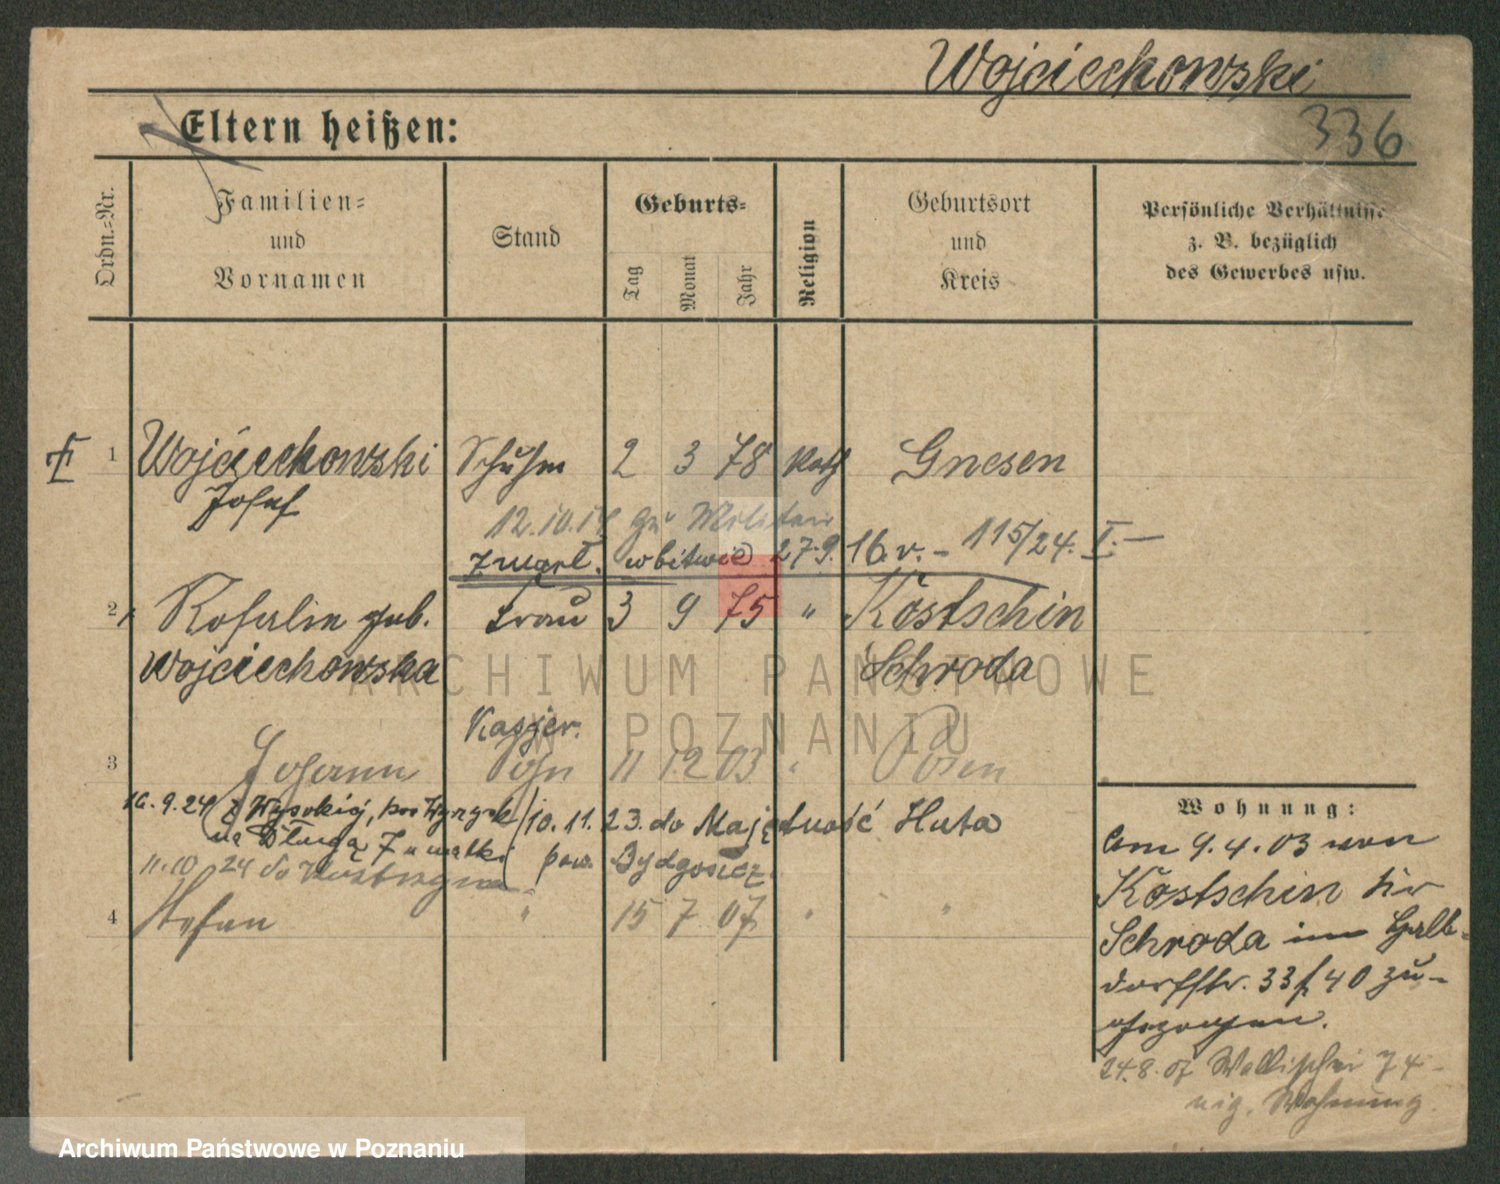 Wojciechowski
Eltern heißen:
336
Ordn.-Nr.
Familien-
und
Vornamen
Stand
Geburts-
Tag
Monat
Jahr
Religion
Geburtsort
und
Kreis
Persönliche Verhältnisse
z. B. bezüglich
des Gewerbes usw.
1 Wojciechowski Schuhm 2 3 78 kath Gnesen
Josef
12.10.14 zu Militair
zmarł. w bitwie 27.9.16.r. - 115/24. I. -
2 Rosalie geb. Frau 3 9 75 " Kostschin
Wojciechowska Schroda
Kassier.
3 Johann Sohn 11 12 03 " Posen
16.9.24 z Wysokiej, pow Wyrzysk
na Długą 7 u matki
10.11.23. do Majętność Huta
pow. Bydgoszcz
11.10 24 do
4 Stefan " 15 7 07 " "
Wohnung:
Am 9.4.03 von
Kostschin Kr
Schroda in Halb-
dorfstr. 33 40 zu-
gezogen.
24.8.07 Wallischei 74
eig. Wohnung.
ARCHIWUM PAŃSTWOWE
W POZNANIU
Archiwum Państwowe w Poznaniu